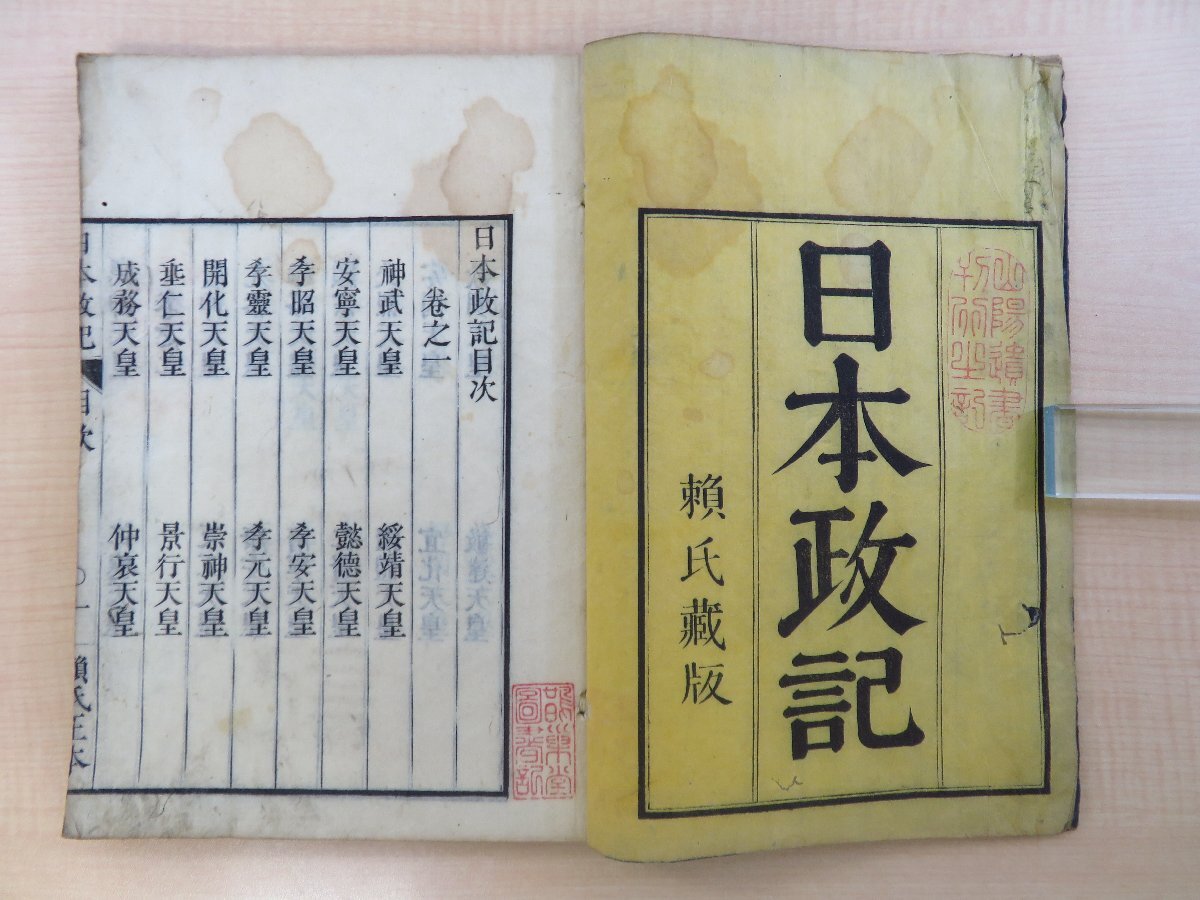 山陽遺書
日本政記
賴氏藏版
日本政記目次
卷之一
神武天皇 綏靖天皇
安寧天皇 懿德天皇
孝昭天皇 孝安天皇
孝靈天皇 孝元天皇
開化天皇 崇神天皇
垂仁天皇 景行天皇
成務天皇 仲哀天皇
日本政記 目次 一 賴氏正本